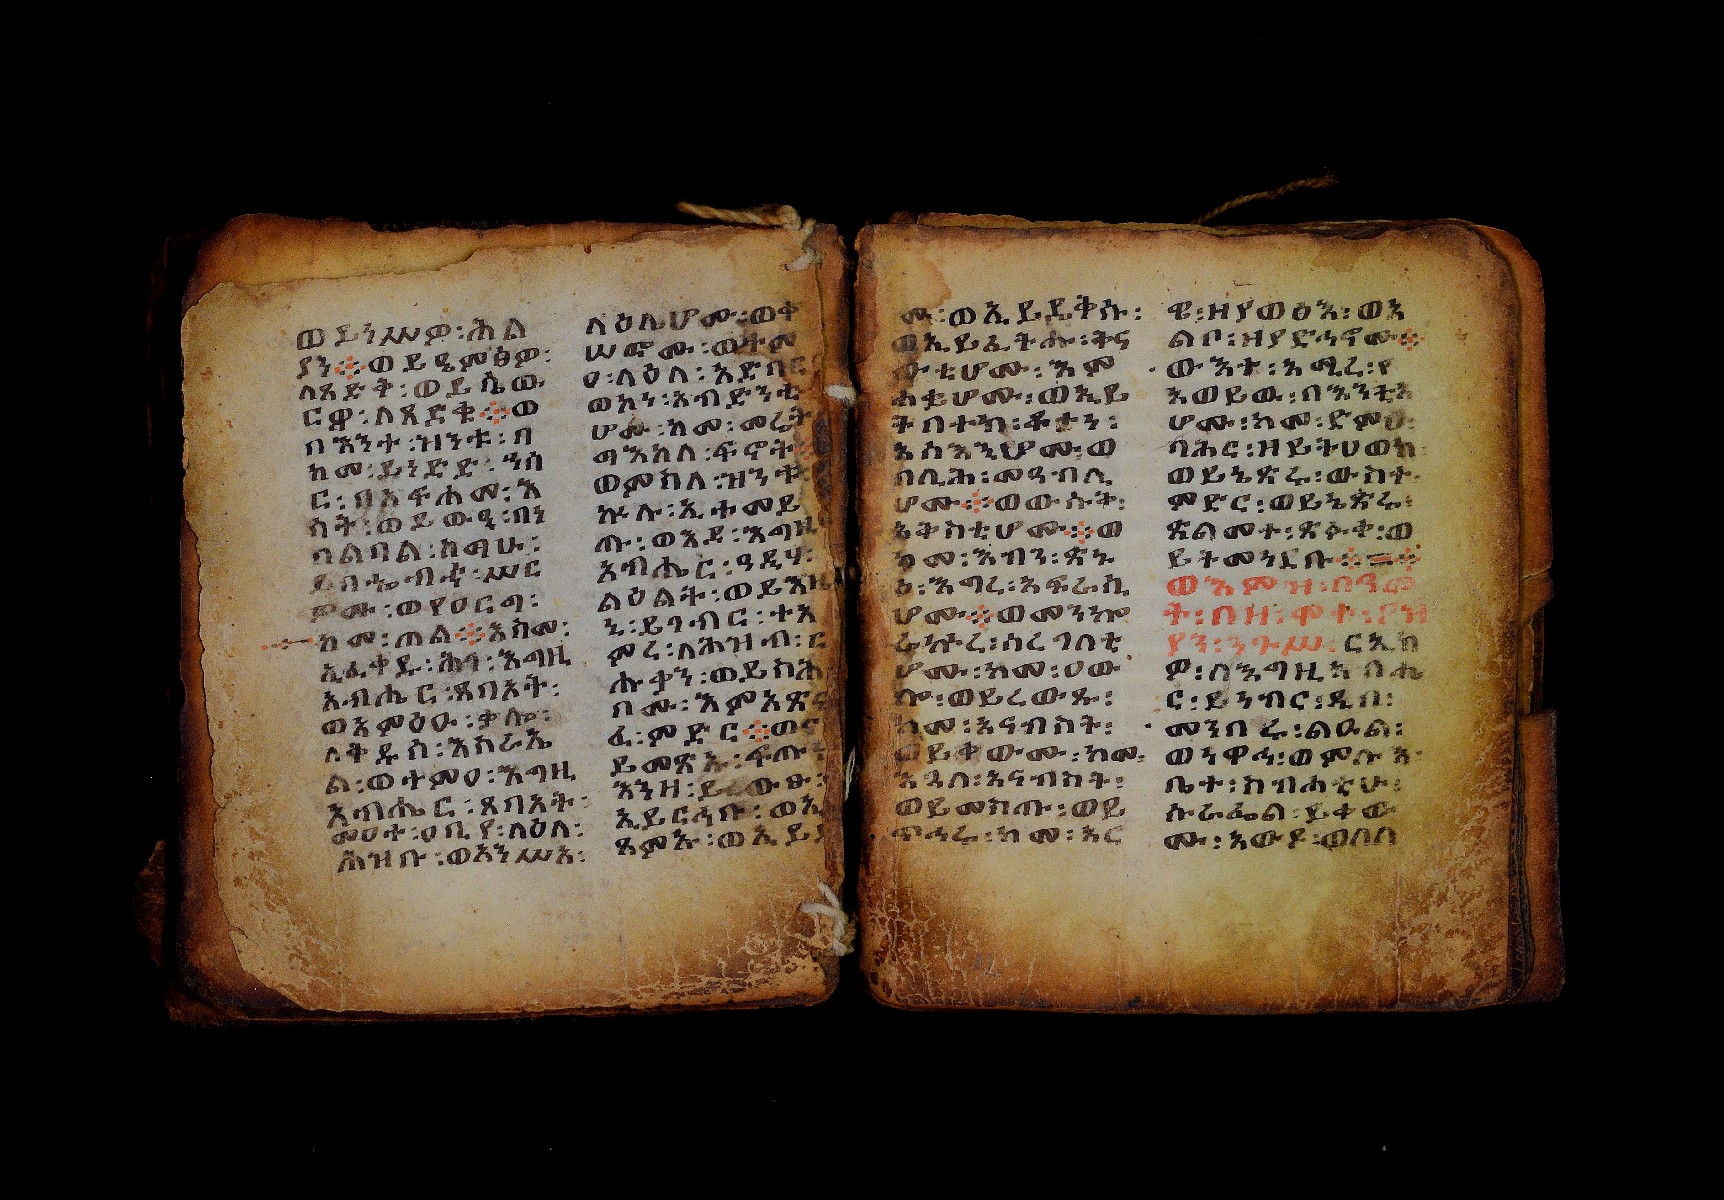 ወይነሥዎ፡ሕል
ያን፨ወይዔምፅዎ፡
ለጻድቅ፡ወይሴው
ርዎ፡ለጻድቁ፨ወ
በእንተ፡ዝንቱ፡በ
ከመ፡ይነድድ፡ኀሰ
ር፡በአፍሐመ፡እ
ሳት፡ወይውዒ፡በነ
በልባል፡ከማሁ፡
ሥር
ዎሙ፡ወየዐርግ፡
ከመ፡ጠል፨እስመ፡
ኢፈቀዱ፡ሕገ፡እግዚ
አብሔር፡ጸባኦት፡
ወአምዕዑ፡ቃሎ፡
ለቅዱስ፡እስራኤ
ል፡ወተምዐ፡እግዚ
አብሔር፡ጸባኦት፡
መዐተ፡ዐቢየ፡ላዕለ፡
ሕዝቡ፡ወአንሥአ፡
ላዕሌሆሙ፡ወቀ
ሠፎሙ፡ወተም
ዐ፡ላዕለ፡አድባር፡
ወኮነ፡አብድንቲ
ሆሙ፡ከመ፡መሬት
ማእከለ፡ፍኖት፡
ወምስለ፡ዝንቱ፡
ኵሉ፡ኢተመይ
ጡ፡ወእዳ፡እግዚ
አብሔር፡ዓዲሃ፡
ልዕልት፡ወይእዜ
ኒ፡ይገብር፡ተአ
ምረ፡ለሕዝብ፡ር
ሑቃን፡ወይስሕ
ቦሙ፡እምአጽና
ፈ፡ምድር፨ወና
ይመጽኡ፡ፍጡነ
እንዘ፡ይረውጹ፡
ኢይርኅቡ፡ወኢ
ጸምኡ፡ወኢይ
ሙ፡ወኢይደቅሱ፡
ወኢይፈትሑ፡ቅና
ውቲሆሙ፡እም
ሐቌሆሙ፡ወኢይ
ትበተክ፡ቶታን፡
አሳእኒሆሙ፡ወ
በሊሕ፡መዓብሊ
ሆሙ፨ወውሱቅ፡
አቅስቲሆሙ፨ወ
ከመ፡እብን፡ጽኑ
ዕ፡እግረ፡አፍራሲ
ሆሙ፨ወመንኰ
ራኵረ፡ሰረገላቲ
ሆሙ፡ከመ፡ዐው
ሎ፡ወይረውጹ፡
ከመ፡አናብስት፡
ወይቀውሙ፡ከመ፡
እጓለ፡አናብስት፡
ወይመስጡ፡ወይ
ጥኅሩ፡ከመ፡አር
ዌ፡ዘያወፅእ፡ወአ
ልቦ፡ዘያድኅኖሙ፨
ውእተ፡አሚረ፡የ
አወይዉ፡በእንቲአ
ሆሙ፡ከመ፡ድምፀ፡
ባሕር፡ዘይትሀወክ
ወይኔጽሩ፡ውስተ፡
ምድር፡ወይኔጽሩ፡
ጽልመተ፡ጽፉቀ፡ወ
ይትመነደቡ፨=፨
ወእምዝ፡በዓመ
ት፡በዘ፡ሞተ፡ዖዝ
ያን፡ንጉሥ፡ርኢክ
ዎ፡ለእግዚአብሔ
ር፡ይነብር፡ዲበ፡
መንበሩ፡ልዑል፡
ወነዋኅ፡ወምሉእ፡
ቤተ፡ስብሐቲሁ፡
ሱራፌል፡ይቀው
ሙ፡አውዶ፡ወስስ